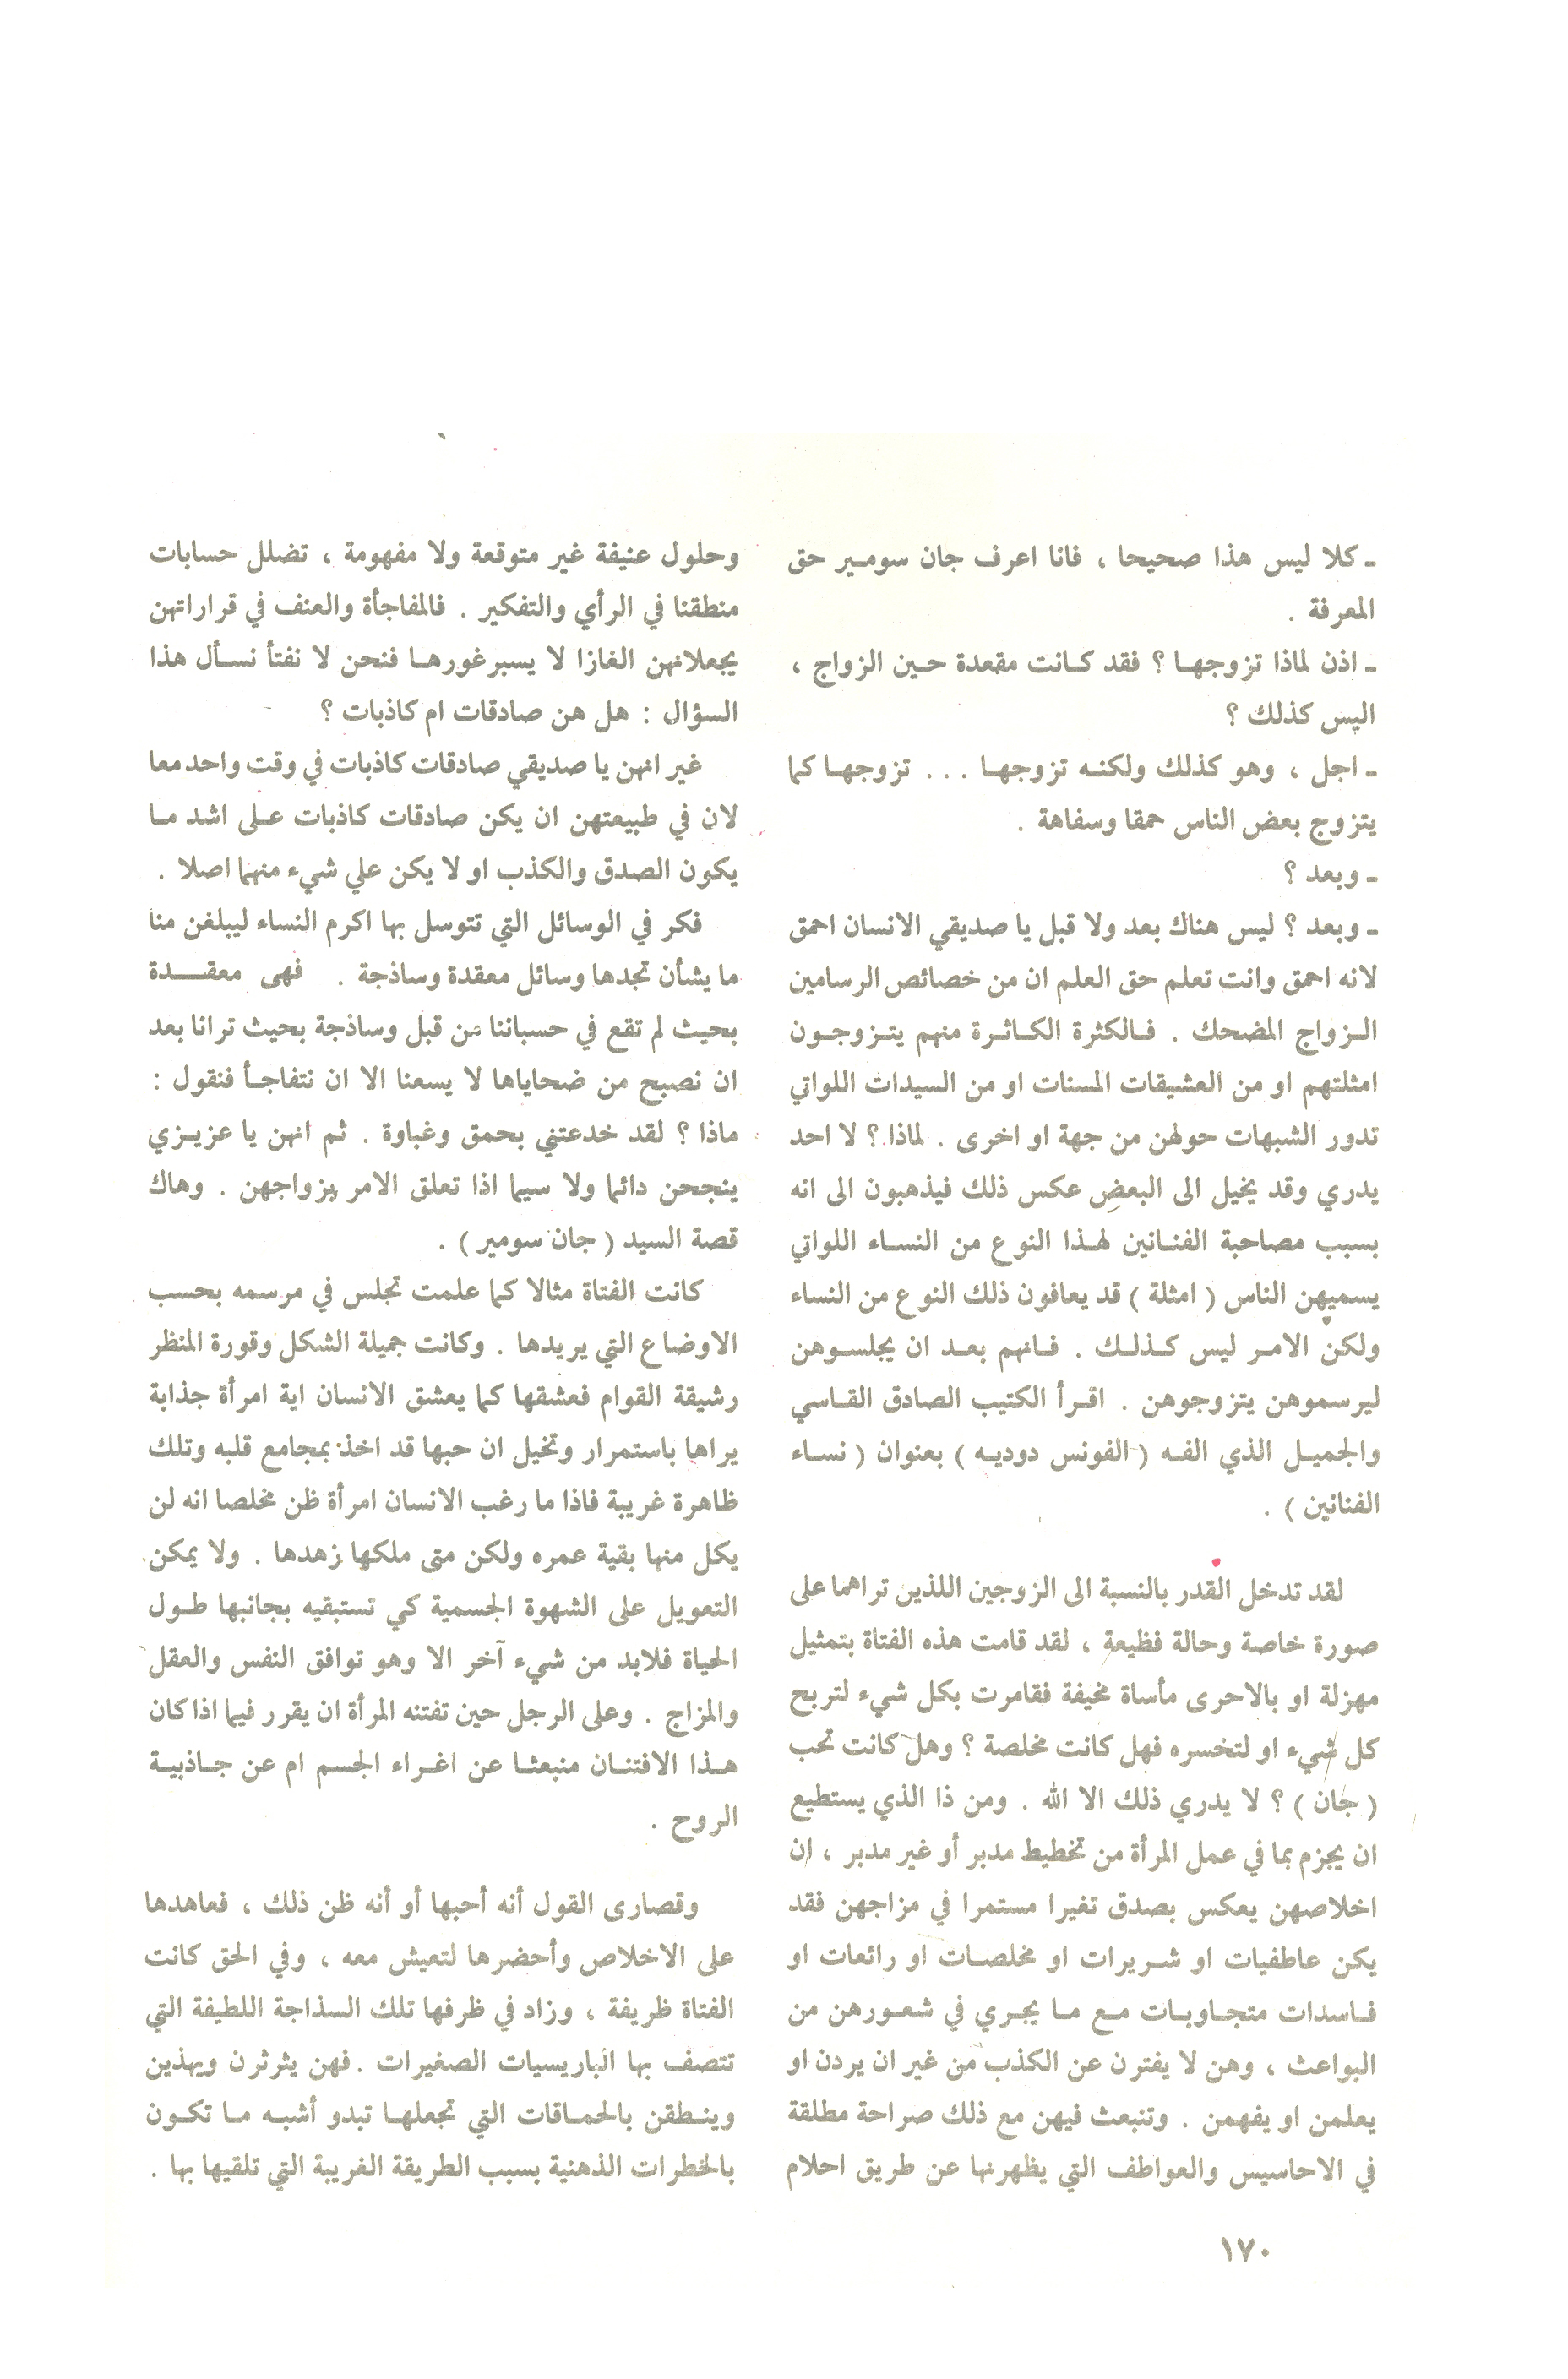 ـ كلا ليس هذا صحيحا ، فانا اعرف جان سومـير حق
المعرفة .
ـ اذن لماذا تزوجهـا ؟ فقد كـانت مقعدة حـين الزواج ،
اليس كذلك ؟
ـ اجل ، وهو كذلك ولكنـه تزوجهـا . . . تزوجهـا كما
يتزوج بعض الناس حمقا وسفاهة .
ـ وبعد ؟
ـ وبعد ؟ ليس هناك بعد ولا قبل يا صديقي الانسان احمق
لانه احمق وانت تعلم حق العلم ان من خصائص الرسامين
الـزواج المضحك . فـالكثرة الكـاثـرة منهم يتـزوجـون
امثلتهم او من العشيقات المسنات او من السيدات اللواتي
تدور الشبهات حولهن من جهة او اخرى . لماذا ؟ لا احد
يدري وقد يخيل الى البعض عكس ذلك فيذهبون الى انه
بسبب مصاحبة الفنـانين لهـذا النوع من النسـاء اللواتي
يسميهن الناس ( امثلة ) قد يعافون ذلك النوع من النساء
ولكن الامـر ليس كـذلـك . فـانهم بعـد ان يجلسـوهن
ليرسموهن يتزوجوهن . اقـرأ الكتيب الصادق القـاسي
والجميـل الذي الفـه ( الفونس دوديـه ) بعنوان ( نسـاء
الفنانين ) .
لقد تدخل القدر بالنسبة الى الزوجين اللذين تراهما على
صورة خاصة وحالة فظيعة ، لقد قامت هذه الفتاة بتمثيل
مهزلة او بالاحرى مأساة مخيفة فقامرت بكل شيء لتربح
كل شيء او لتخسره فهل كانت مخلصة ؟ وهل كانت تحب
( جان ) ؟ لا يدري ذلك الا الله . ومن ذا الذي يستطيع
ان يجزم بما في عمل المرأة من تخطيط مدبر أو غير مدبر ، ان
اخلاصهن يعكس بصدق تغيرا مستمرا في مزاجهن فقد
يكن عاطفيات او شـريرات او مخلصـات او رائعات او
فـاسدات متجـاوبـات مـع مـا يجـري في شعـورهن من
البواعث ، وهن لا يفترن عن الكذب من غير ان يردن او
يعلمن او يفهمن . وتنبعث فيهن مع ذلك صراحة مطلقة
في الاحاسيس والعواطف التي يظهرنها عن طريق احلام
وحلول عنيفة غير متوقعة ولا مفهومة ، تضلل حسابات
منطقنا في الرأي والتفكير . فالمفاجأة والعنف في قراراتهن
يجعلانهن الغازا لا يسبرغورهـا فنحن لا نفتأ نسـأل هذا
السؤال : هل هن صادقات ام كاذبات ؟
غير انهن يا صديقي صادقات كاذبات في وقت واحد معا
لان في طبيعتهن ان يكن صادقات كاذبات عـلى اشد مـا
يكون الصدق والكذب او لا يكن علي شيء منهما اصلا .
فكر في الوسائل التي تتوسل بها اكرم النساء ليبلغن منا
ما يشأن تجدها وسائل معقدة وساذجة . فهى معقـــدة
بحيث لم تقع في حسباننا من قبل وساذجة بحيث ترانا بعد
ان نصبح من ضحاياها لا يسعنا الا ان نتفاجـأ فنقول :
ماذا ؟ لقد خدعتني بحمق وغباوة . ثم انهن يا عزيـزي
ينجحن دائما ولا سيما اذا تعلق الامر بزواجهن . وهاك
قصة السيد ( جان سومير ) .
كانت الفتاة مثالا كما علمت تجلس في مرسمه بحسب
الاوضاع التي يريدها . وكانت جميلة الشكل وقورة المنظر
رشيقة القوام فعشقها كما يعشق الانسان اية امرأة جذابة
يراها باستمرار وتخيل ان حبها قد اخذ بمجامع قلبه وتلك
ظاهرة غريبة فاذا ما رغب الانسان امرأة ظن مخلصا انه لن
يكل منها بقية عمره ولكن متى ملكها زهدها . ولا يمكن
التعويل على الشهوة الجسمية كي تستبقيه بجانبها طـول
الحياة فلابد من شيء آخر الا وهو توافق النفس والعقل
والمزاج . وعلى الرجل حين تفتنه المرأة ان يقرر فيما اذا كان
هـذا الافتنـان منبعثـا عن اغـراء الجسم ام عن جـاذبيـة
الروح .
وقصارى القول أنه أحبها أو أنه ظن ذلك ، فعاهدها
على الاخلاص وأحضرها لتعيش معه ، وفي الحق كانت
الفتاة ظريفة ، وزاد في ظرفها تلك السذاجة اللطيفة التي
تتصف بها الباريسيات الصغيرات . فهن يثرثرن ويهذين
وينـطقن بالحمـاقات التي تجعلهـا تبدو أشبـه مـا تكـون
بالخطرات الذهنية بسبب الطريقة الغريبة التي تلقيها بها .
١٧٠